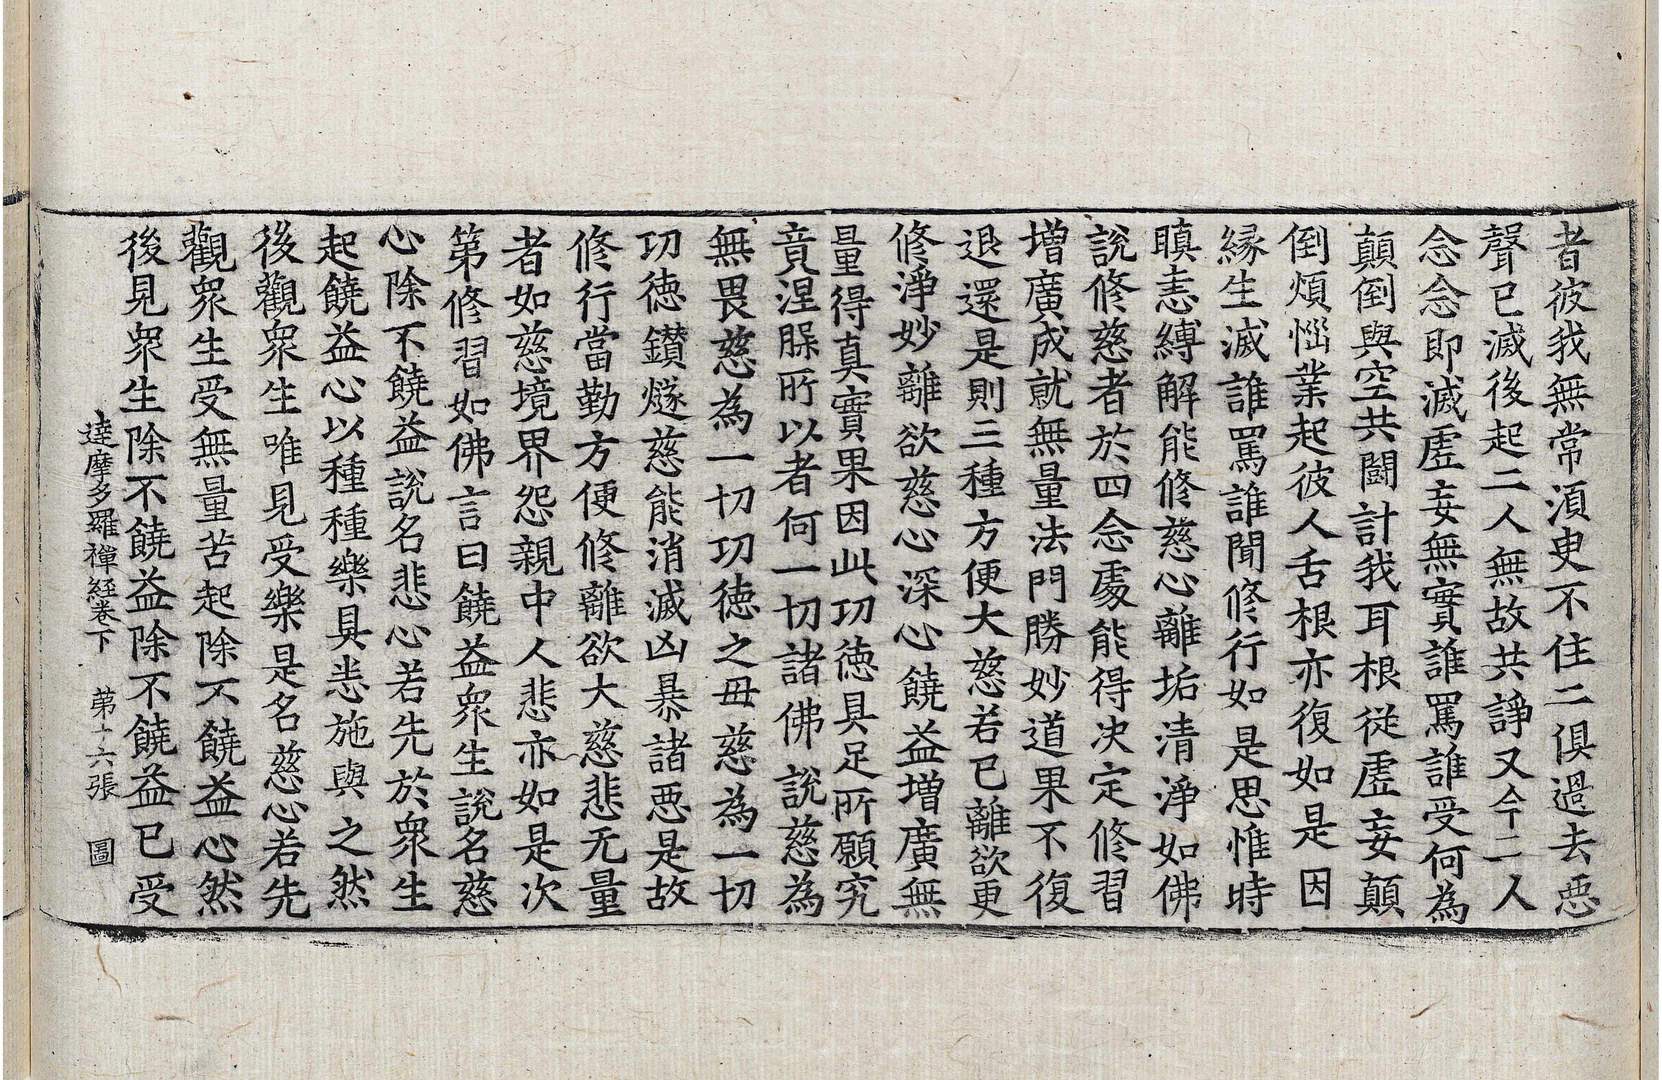 者彼我無常須㬰不住二俱過去惡
聲已滅後起二人無故共諍又今二人
念念即滅虛妄無實誰罵誰受何為
顛倒與空共鬪計我耳根從虛妄顛
倒煩惱業起彼人舌根亦復如是因
緣生滅誰罵誰聞修行如是思惟時
瞋恚縛解能修慈心離垢清淨如佛
說修慈者於四念處能得決定修習
增廣成就無量法門勝妙道果不復
退還是則三種方便大慈若已離欲更
修淨妙離欲慈心深心饒益增廣無
量得真實果因此功德具足所願究
竟涅槃所以者何一切諸佛說慈為
無畏慈為一切功德之母慈為一切
功德鑚燧慈能消滅凶暴諸惡是故
修行當勤方便修離欲大慈悲无量
者如慈境界怨親中人悲亦如是次
第修習如佛言曰饒益眾生說名慈
心除不饒益說名悲心若先於眾生
起饒益心以種種樂具悉施與之然
後觀眾生唯見受樂是名慈心若先
觀眾生受無量苦起除不饒益心然
後見眾生除不饒益除不饒益已受
達摩多羅禪經卷下 第十六張 圖